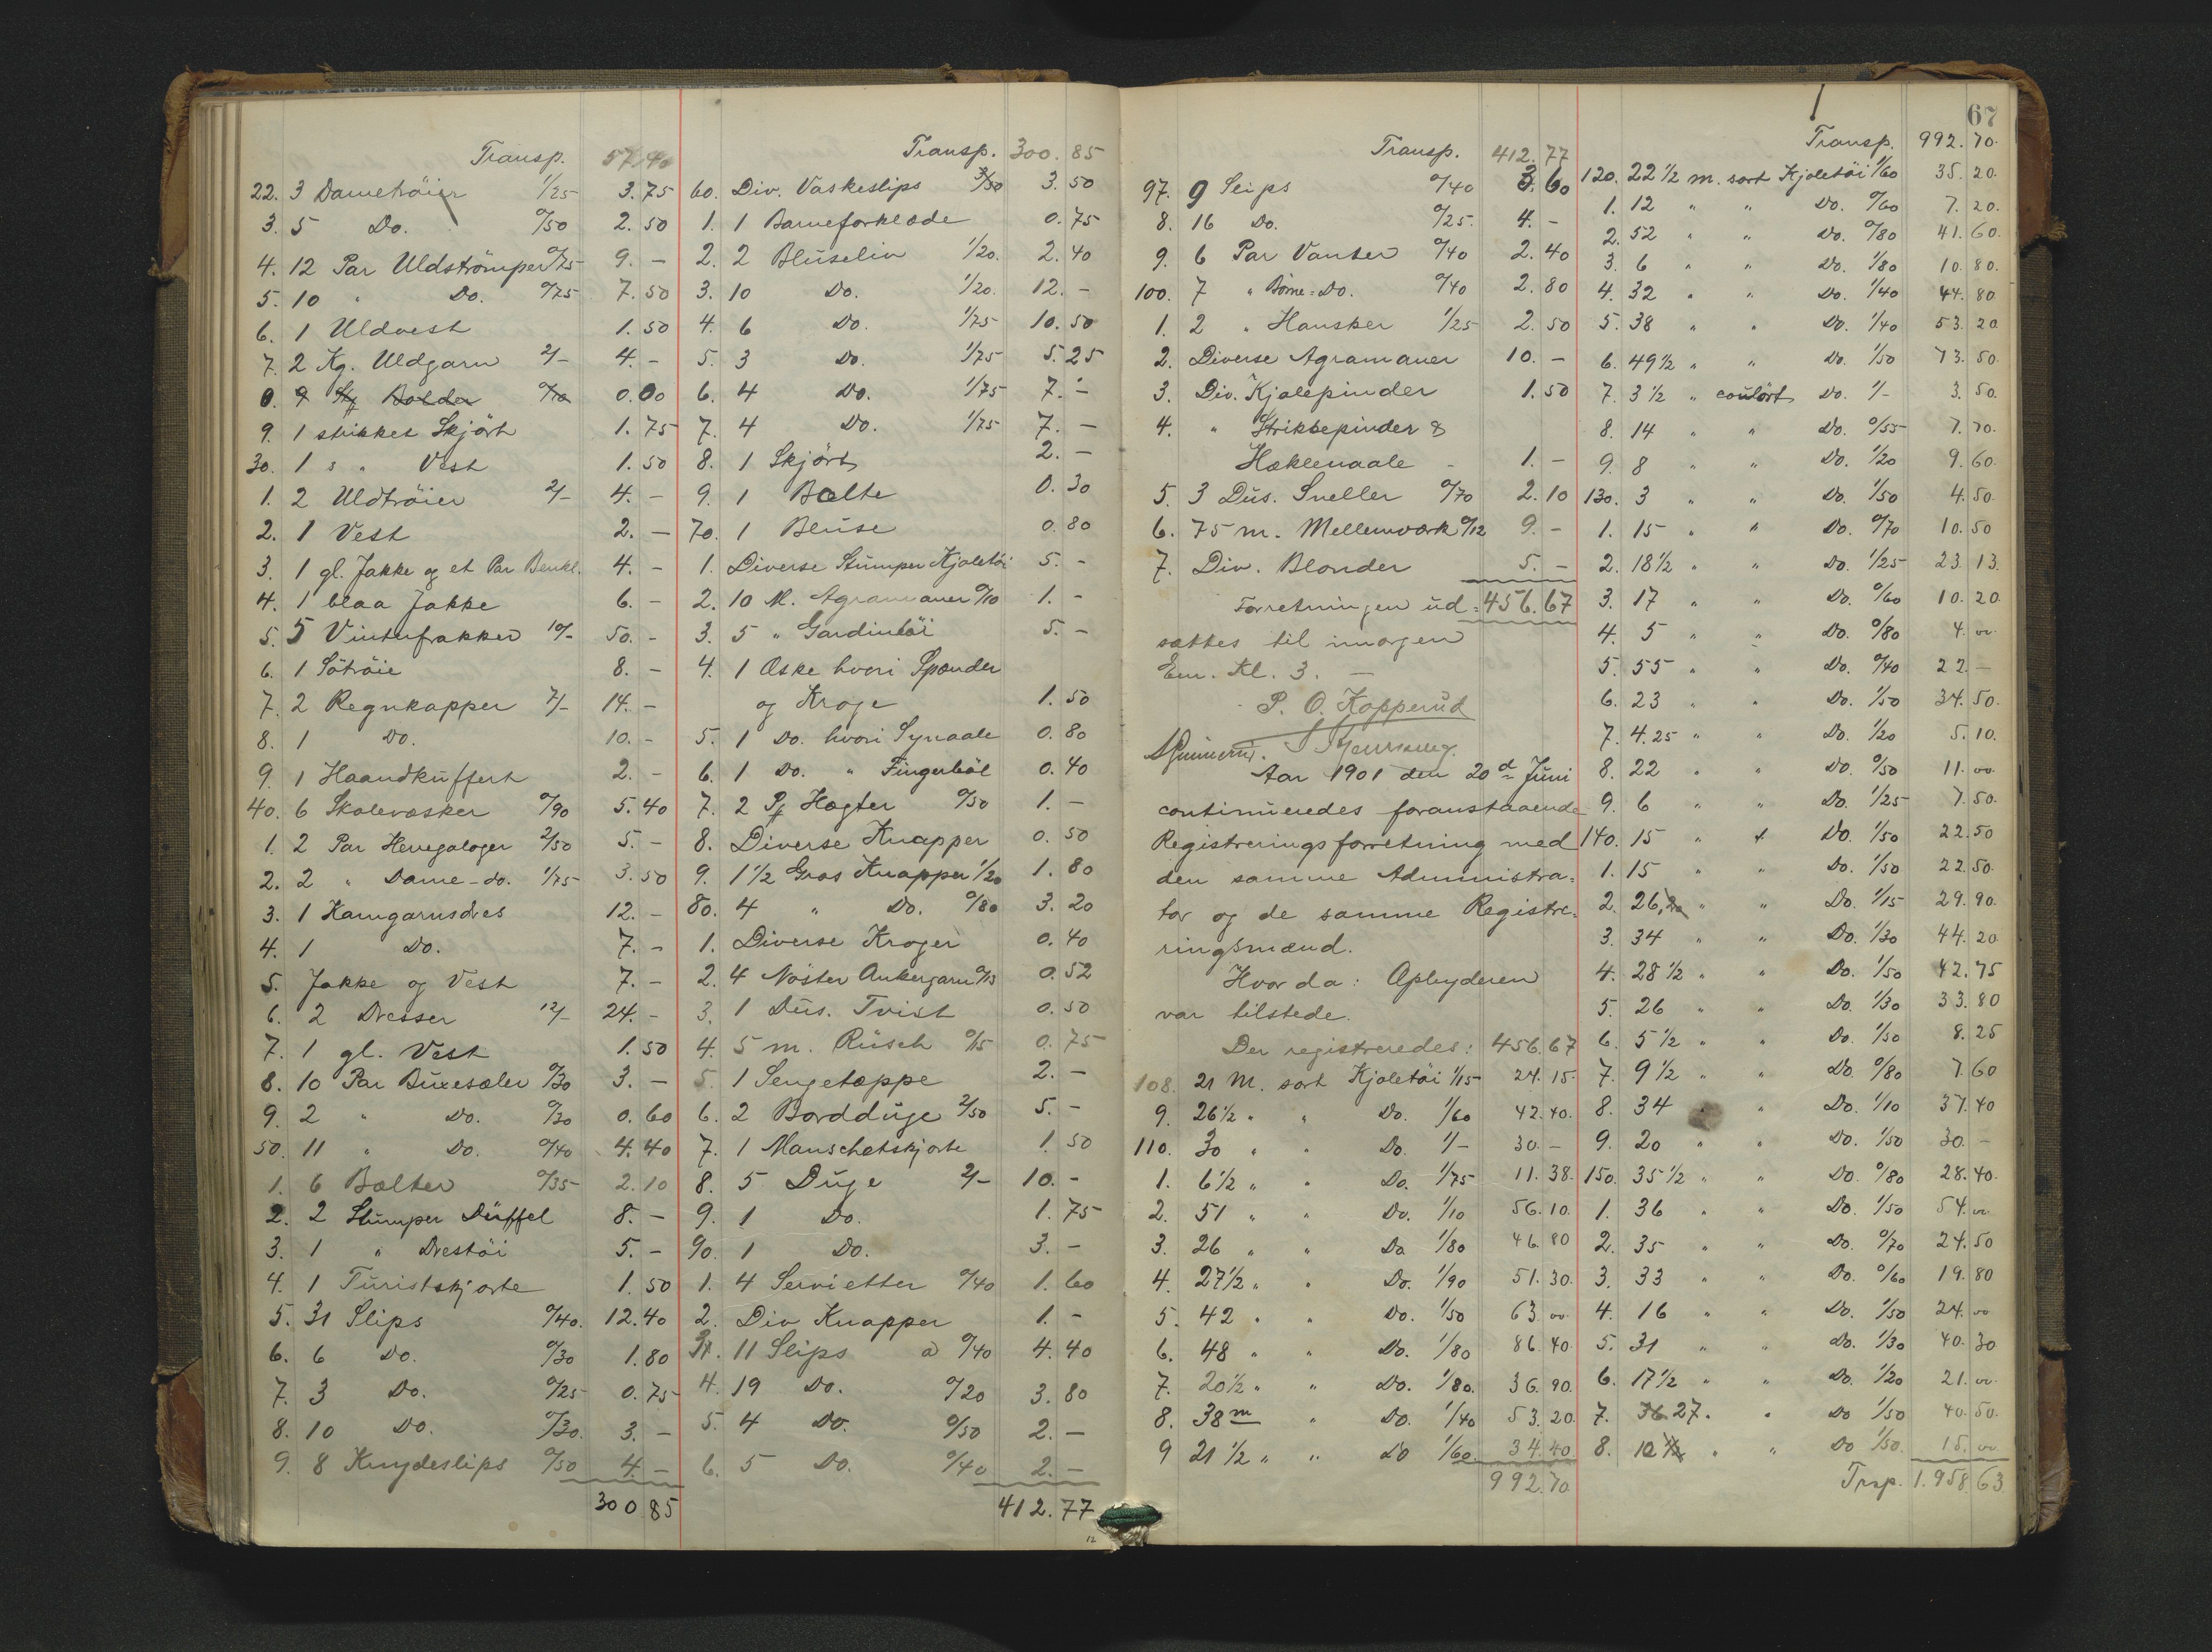 Transp. 57.40
22. 3 Dametröier 1/25 3.75
3. 5 Do. 0/50 2.50
4. 12 Par Uldströmper 0/75 9.-
5. 10 " Do. 0/75 7.50
6. 1 Uldvest 1.50
7. 2 Kg. Uldgarn 2/- 4.-
0.00
9. 1 strikket Skjört 1.75
30. 1 s " Vest 1.50
1. 2 Uldtröier 2/- 4.-
2. 1 Vest 2.-
3. 1 gl. Jakke og et Par Benkl. 4.-
4. 1 blaa Jakke 6.-
5. 5 Vinterfrakker 10/- 50.-
6. 1 Sötröie 8.-
7. 2 Regnkapper 7/- 14.-
8. 1 Do. 10.-
9. 1 Haandkuffert 2.-
40. 6 Skolevæsker 0/90 5.40
1. 2 Par Herregaloger 2/50 5.-
2. 2 " Dame-do. 1/75 3.50
3. 1 Kamgarnsdres 12.-
4. 1 Do. 7.-
5. Jakke og Vest 7.-
6. 2 Dresser 12/- 24.-
7. 1 gl. Vest 1.50
8. 10 Par Buxesæler 0/30 3.-
9. 2 " Do. 0/30 0.60
50. 11 " Do. 0/40 4.40
1. 6 Bælter 0/35 2.10
2. 2 Stumper Düffel 8.-
3. 1 " Drestöi 5.-
4. 1 Turistskjorte 1.50
5. 31 Slips 0/40. 12.40
6. 6 Do. 0/30 1.80
7. 3 Do. 0/25 0.75
8. 10 Do. 0/30. 3.-
9. 8 Knydeslips 0/50 4.-
300.85
Transp. 300.85
60. Div. Vaskeslips 3/50 3.50
1. 1 Barneforklæde 0.75
2. 2 Bluseliv 1/20. 2.40
3. 10 Do. 1/20. 12.-
4. 6 Do. 1/75 10.50
5. 3 Do. 1/75 5.25
6. 4 Do. 1/75 7.-
7. 4 Do. 1/75 7.-
8. 1 Skjört 2.-
9. 1 Bælte 0.30
70. 1 Bluse 0.80
1. Diverse Stumper Kjoletöi 5.-
2. 10 M. Agramaner 0/10 1.-
3. 5 " Gardintöi 5.-
4. 1 Æske hvori Spænder
og Kroge 1.50
5. 1 Do. hvori Synaale 0.80
6. 1 Do. " Fingerböl 0.40
7. 2 Hægter 0/50 1.-
8. Diverse Knapper 0.50
9. 1 1/2 Gros Knapper 1/20 1.80
80. 4 " Do. 0/80 3.20
1. Diverse Kroger 0.40
2. 4 Nöster Ankergarn 0/13 0.52
3. 1 Dus. Tvist 0.50
4. 5 m. Rüsch 0/15 0.75
5. 1 Sengetæppe 2.-
6. 2 Bordduge 2/50 5.-
7. 1 Manschetskjorte 1.50
8. 5 Duge 2/- 10.-
9. 1 Do. 1.75
90. 1 Do. 3.-
1. 4 Servietter 0/40 1.60
2. Div Knapper 1.-
11 Slips a 0/40 4.40
4. 19 Do. 0/20 3.80
5. 4 Do. 0/50 2.-
6. 5 Do. 0/40 2.-
412.77
12
Transp. 412.77
97. 9 Slips 0/40 3.60
8. 16 Do. 0/25. 4.-
9. 6 Par Vanter 0/40 2.40
100. 7 " Börne=Do. 0/40 2.80
1. 2 " Hansker 1/25 2.50
2. Diverse Agramaner 10.-
3. Div. Kjolepinder 1.50
4. " Strikkepinder &
Hæklenaale - 1.-
5. 3 Dus. Sneller 0/70 2.10
6. 75 m. Mellemværk 0/12 9.-
7. Div. Blonder 5.-
Forretningen ud= 456.67
sættes til imorgen
Em. Kl. 3. -
P. O. Kopperud
Aar 1901 den 20d Juni
continueredes foranstaaende
Registreringsforretning med
den samme Administra=
tor og de samme Registre-
ringsmænd.
Hvor da: Opbyderen
var tilstede.
Der registreredes: 456.67
108. 21 M. sort Kjoletöi 1/15 24.15
9. 26 1/2 " " Do. 1/60 42.40.
110. 30 " " Do. 1/- 30.-
1. 6 1/2 " " Do. 1/75 11.38.
2. 51 " " Do. 1/10 56.10.
3. 26 " " Do 1/80 46.80
4. 27 1/2 " " Do. 1/90 51.30.
5. 42 " " Do. 1/50 63.00
6. 48 " " Do. 1/80 86.40.
7. 20 1/2 " " Do. 1/80. 36.90.
8. 38 m " Do. 1/40 53.20.
9 21 1/2 " " Do 1/60. 34.40
992.70
67
Transp. 992.70.
120. 22 1/2 m. sort Kjoletöi 1/60 35.20.
1. 12 " " Do. 0/60 7.20.
2. 52 " " Do. 0/80 41.60.
3. 6 " " Do. 1/80 10.80.
4. 32 " " Do. 1/40 44.80
5. 38 " " Do. 1/40 53.20
6. 49 1/2 " " Do. 1/50 73.50.
7. 3 1/2 " coulört Do. 1/- 3.50.
8. 14 " " Do. 0/55 7.70.
9. 8 " " Do. 1/20 9.60.
130. 3 " " Do. 1/50 4.50.
1. 15 " " Do. 0/70 10.50
2. 18 1/2 " " Do. 1/25 23.13.
3. 17 " " Do. 0/60 10.20.
4. 5 " " Do. 0/80 4.00
5. 55 " " Do. 0/40 22.-
6. 23 " " Do. 1/50 34.50.
7. 4.25 " " Do. 1/20 5.10.
8. 22 " " Do. 0/50 11.00.
9. 6 " " Do. 1/25 7.50.
140. 15 " " Do. 1/50 22.50
1. 15 " " Do. 1/50 22.50.
2. 26 " " Do. 1/15 29.90.
3. 34 " " Do. 1/30 44.20
4. 28 1/2 " " Do. 1/50 42.75
5. 26 " " Do. 1/30 33.80
6. 5 1/2 " " Do. 1/50 8.25
7. 9 1/2 " " Do. 0/80 7.60
8. 34 " " Do. 1/10 37.40
9. 20 " " Do. 1/50 30.-
150. 35 1/2 " " Do. 0/80 28.40.
1. 36 " " Do. 1/50 54.00
2. 35 " " Do. 0/70 24.50
3. 33 " " Do. 0/60 19.80
4. 16 " " Do. 1/50 24.00
5. 31 " " Do. 1/30 40.30
6. 17 1/2 " " Do. 1/20 21.00.
7. 36 27. " Do 1/50 40.50.
8. 10 " " Do 1/50. 15.00
Trsp. 1.958.63